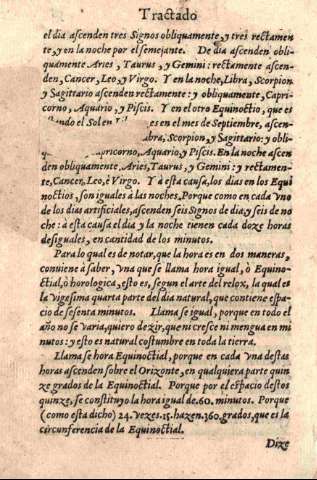 Tractado
el dia ascenden tres Signos obliquamente, y tres rectamen
te, y en la noche por el semejante. De dia ascenden obli-
quamente Aries, Taurus, y Gemini: rectamente ascen-
den, Cancer, Leo, y Virgo. Y en la noche, Libra, Scorpion
y Sagittario ascenden rectamente: y obliquamente, Capri-
corno, Aquario, y Piscis. Y en el otro Equinoctio, que es
el Sol en es en el mes de Septiembre, ascen-
abra, Scorpion, y Sagittario: y obli-
apricorno, Aquario, y Piscis. En la noche ascen
den obliquamente, Aries, Taurus, y Gemini: y rectamen-
te, Cancer, Leo, è Virgo. Y à esta causa, los dias en los Equi
noctios, son iguales à las noches. Porque como en cada vno
de los dias artificiales, ascenden seis Signos de dia, y seis de no
che: à esta causa el dia y la noche tienen cada doze horas
desiguales, en cantidad de los minutos.
Para lo qual es de notar, que la hora es en dos maneras,
conviene à saber, vna que se llama hora igual, ò Equino-
ctial, ò horologica, esto es, segun el arte del relox, la qual es
la vigesima quarta parte del dia natural, que contiene espa-
cio de sesenta minutos. Llamase igual, porque en todo el
año no se varia, quiero dezir, que ni cresce ni mengua en mi
nutos: y esto es natural costumbre en toda la tierra.
Llamase hora Equinoctial, porque en cada vna destas
horas ascenden sobre el Orizonte, en qualquiera parte quin
ze grados de la Equinoctial. Porque por el espacio destos
quinze, se constituyo la hora igual de .60. minutos. Porque
(como esta dicho) 24. vezes .15. hazen .360. grados, que es la
circunferencia de la Equinoctial.
Dize